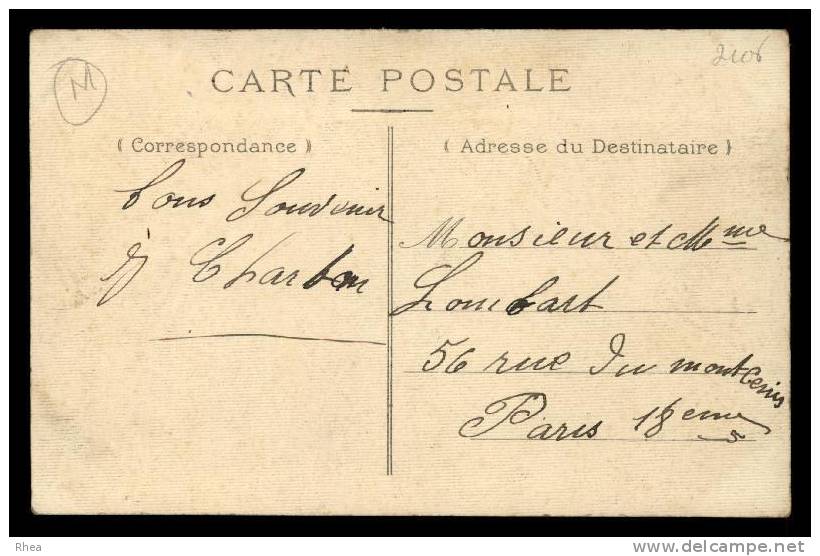 M
CARTE POSTALE
( Correspondance )
bons Souvenir
Charbon
( Adresse du Destinataire )
Monsieur et Mme
Lombart
56 rue du montcenis
Paris 18eme
Rhea
www.delcampe.net